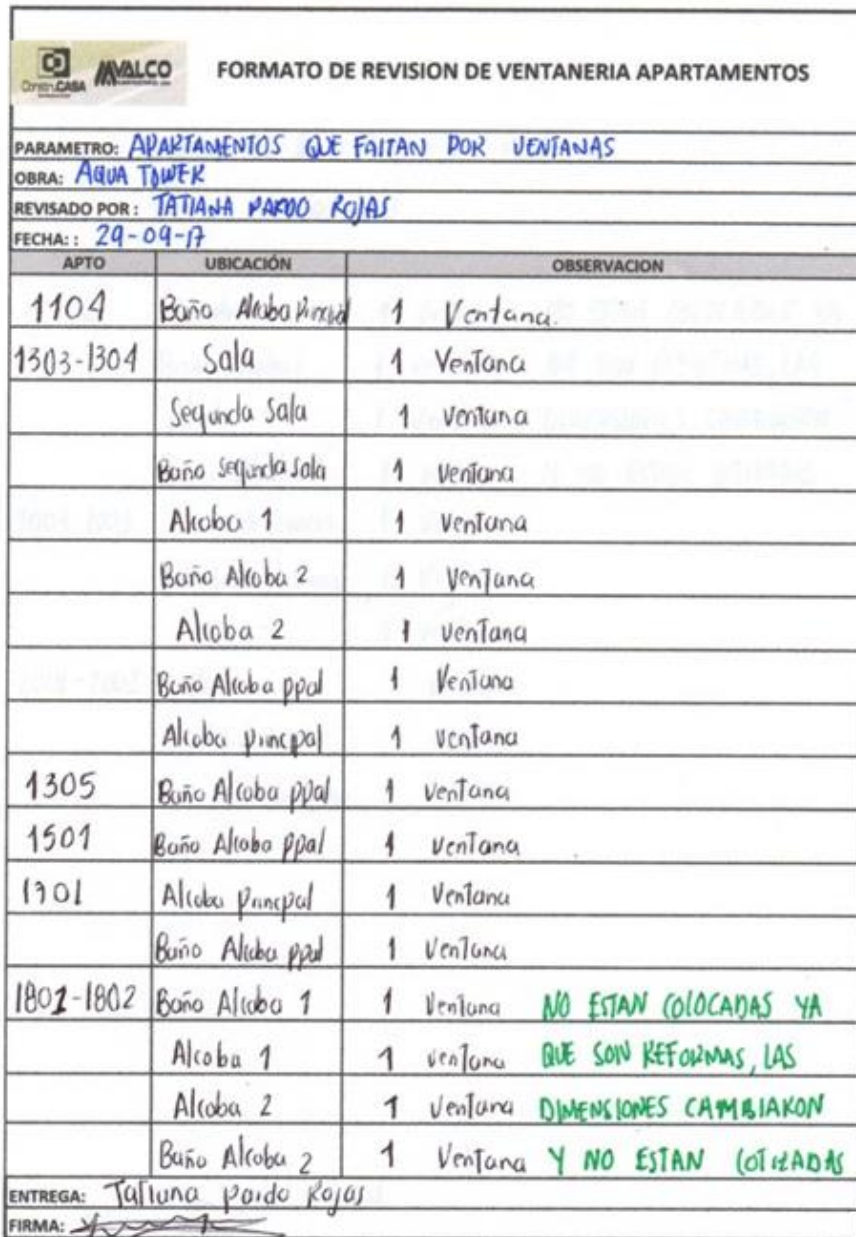 ConstruCASA AVALCO FORMATO DE REVISION DE VENTANERIA APARTAMENTOS
PARAMETRO: APARTAMENTOS QUE FALTAN POR VENTANAS
OBRA: AQUA TOWER
REVISADO POR: TATIANA PARDO ROJAS
FECHA: : 29-09-17
APTO UBICACIÓN OBSERVACION
1104 Baño Alcoba Principal 1 Ventana.
1303-1304 Sala 1 Ventana
Segunda Sala 1 Ventana
Baño Segunda Sala 1 Ventana
Alcoba 1 1 Ventana
Baño Alcoba 2 1 Ventana
Alcoba 2 1 Ventana
Baño Alcoba ppal 1 Ventana
Alcoba principal 1 Ventana
1305 Baño Alcoba ppal 1 Ventana
1501 Baño Alcoba ppal 1 Ventana
1701 Alcoba Principal 1 Ventana
Baño Alcoba ppal 1 Ventana
1801-1802 Baño Alcoba 1 1 Ventana NO ESTAN COLOCADAS YA
Alcoba 1 1 ventana QUE SON REFORMAS, LAS
Alcoba 2 1 Ventana DIMENSIONES CAMBIARON
Baño Alcoba 2 1 Ventana Y NO ESTAN COTIZADAS
ENTREGA: Tatiana Pardo Rojas
FIRMA: